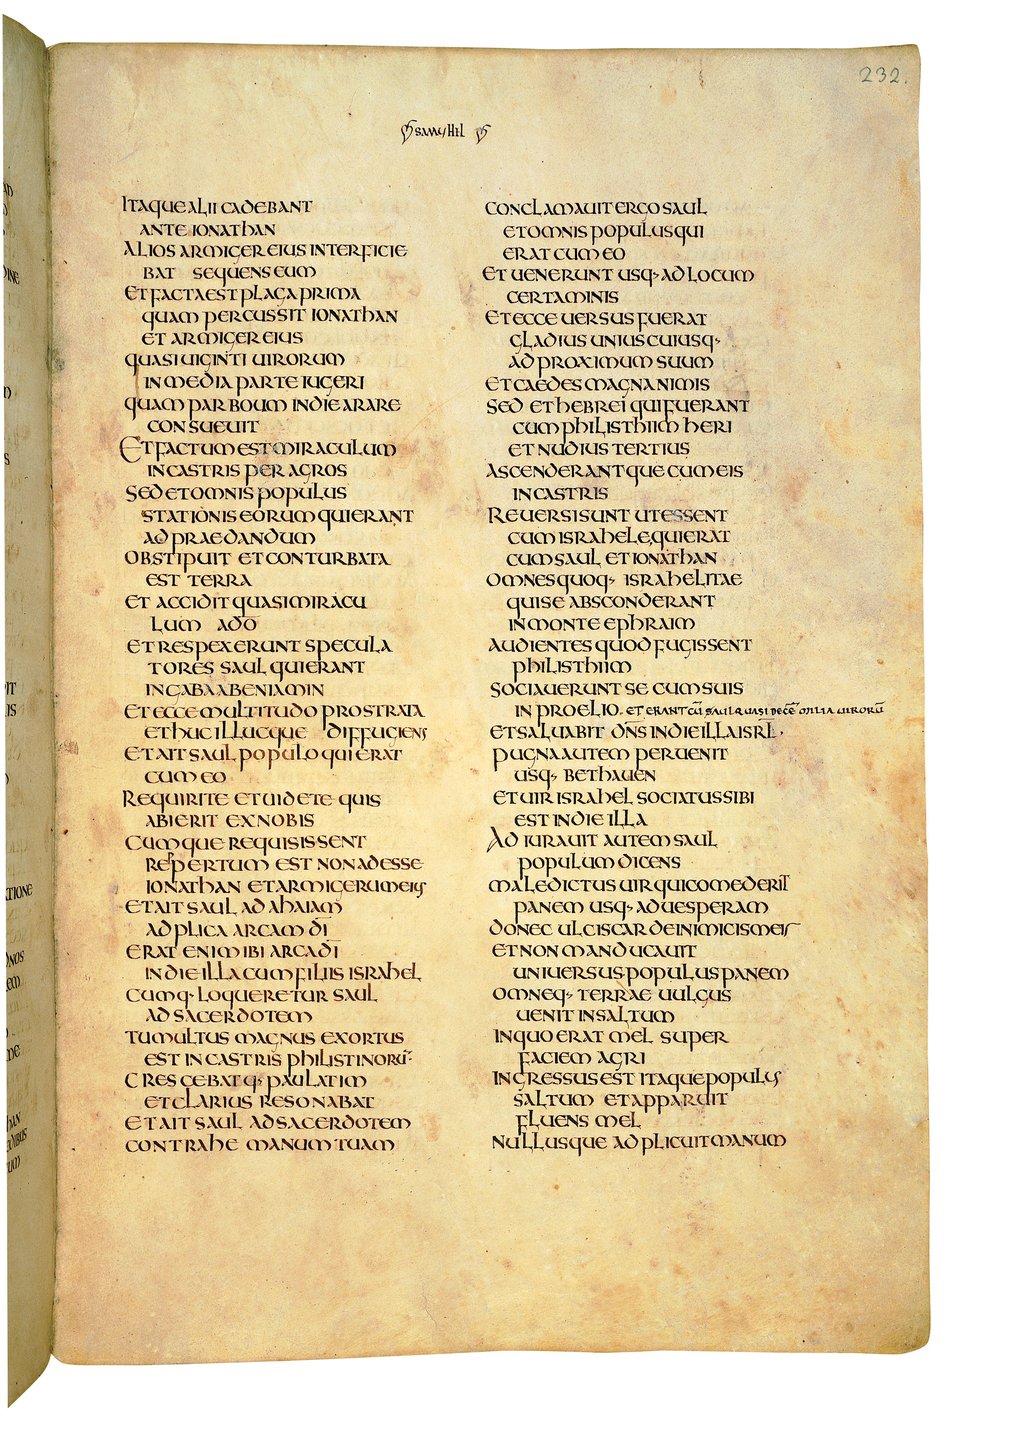 232.
samuhel
Itaque alii cadebant
ante ionathan
alios armiger eius interficie
bat sequens eum
Et facta est plaga prima
quam percussit ionathan
et armiger eius
quasi uiginti uirorum
in media parte iugeri
quam par boum in die arare
consueuit
Et factum est miraculum
in castris per agros
Sed et omnis populus
stationis eorum qui erant
ad praedandum
obstipuit et conturbata
est terra
et accidit quasi miracu
lum a dō
et respexerunt specula
tores saul qui erant
in gabaa beniamin
et ecce multitudo prostrata
et huc illucque diffugiens
et ait saul populo qui erat
cum eo
Requirite et uidete quis
abierit ex nobis
Cumque requisissent
repertum est non adesse
ionathan et armigerum eius
et ait saul ad ahaiam
adplica arcam dī
erat enim ibi arca dī
in die illa cum filiis israhel
Cumq· loqueretur saul
ad sacerdotem
tumultus magnus exortus
est in castris philistinorū·
Crescebat q· paulatim
et clarius resonabat
et ait saul ad sacerdotem
contrahe manum tuam
conclamauit ergo saul
et omnis populus qui
erat cum eo
et uenerunt usq· ad locum
certaminis
et ecce uersus fuerat
gladius uniuscuiusq·
ad proximum suum
et caedes magna nimis
Sed et hebrei qui fuerant
cum philisthiim heri
et nudius tertius
ascenderantque cum eis
in castris
Reuersi sunt ut essent
cum israhele qui erat
cum saul et ionathan
omnes quoq· israhelitae
qui se absconderant
in monte ephraim
audientes quod fugissent
philisthiim
sociauerunt se cum suis
in proelio. et erant cū saul quasi decē milia uirorū
et saluabit dn̄s in die illa isrl̄·
pugna autem peruenit
usq· bethauen
et uir israhel sociatus sibi
est in die illa
Adiurauit autem saul
populum dicens
maledictus uir qui comederit
panem usq· ad uesperam
donec ulciscar de inimicis meis
et non manducauit
uniuersus populus panem
omneq· terrae uulgus
uenit in saltum
in quo erat mel super
faciem agri
ingressus est itaque populus
saltum et apparuit
fluens mel
Nullusque adplicuit manum